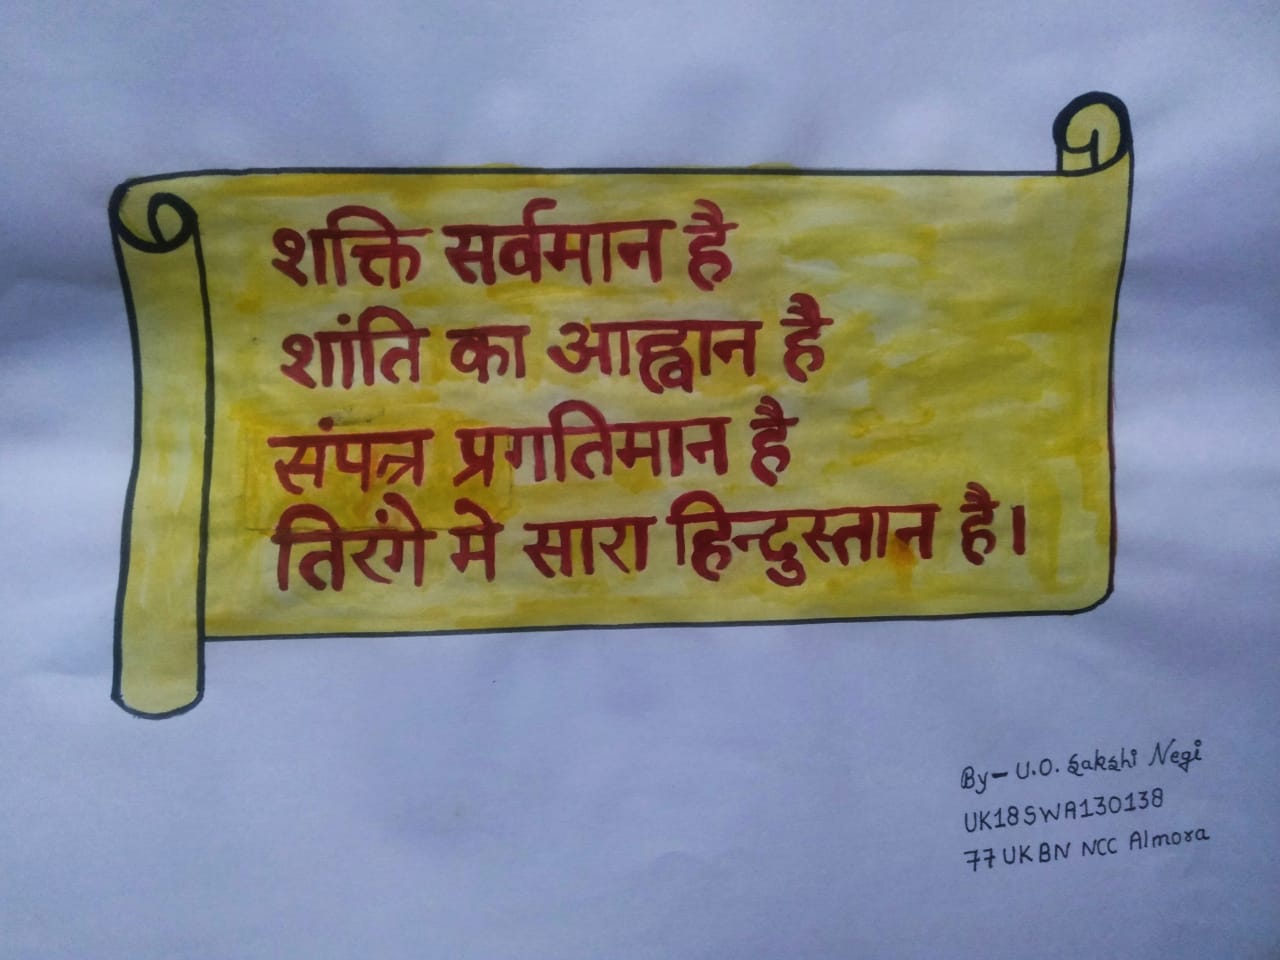 शक्ति सर्वमान है
शांति का आह्वान है
संपन्न प्रगतिमान है
तिरंगे मे सारा हिन्दुस्तान है।
By- U.O. Sakshi Negi
UK18SWA130138
77 UK BN NCC Almora